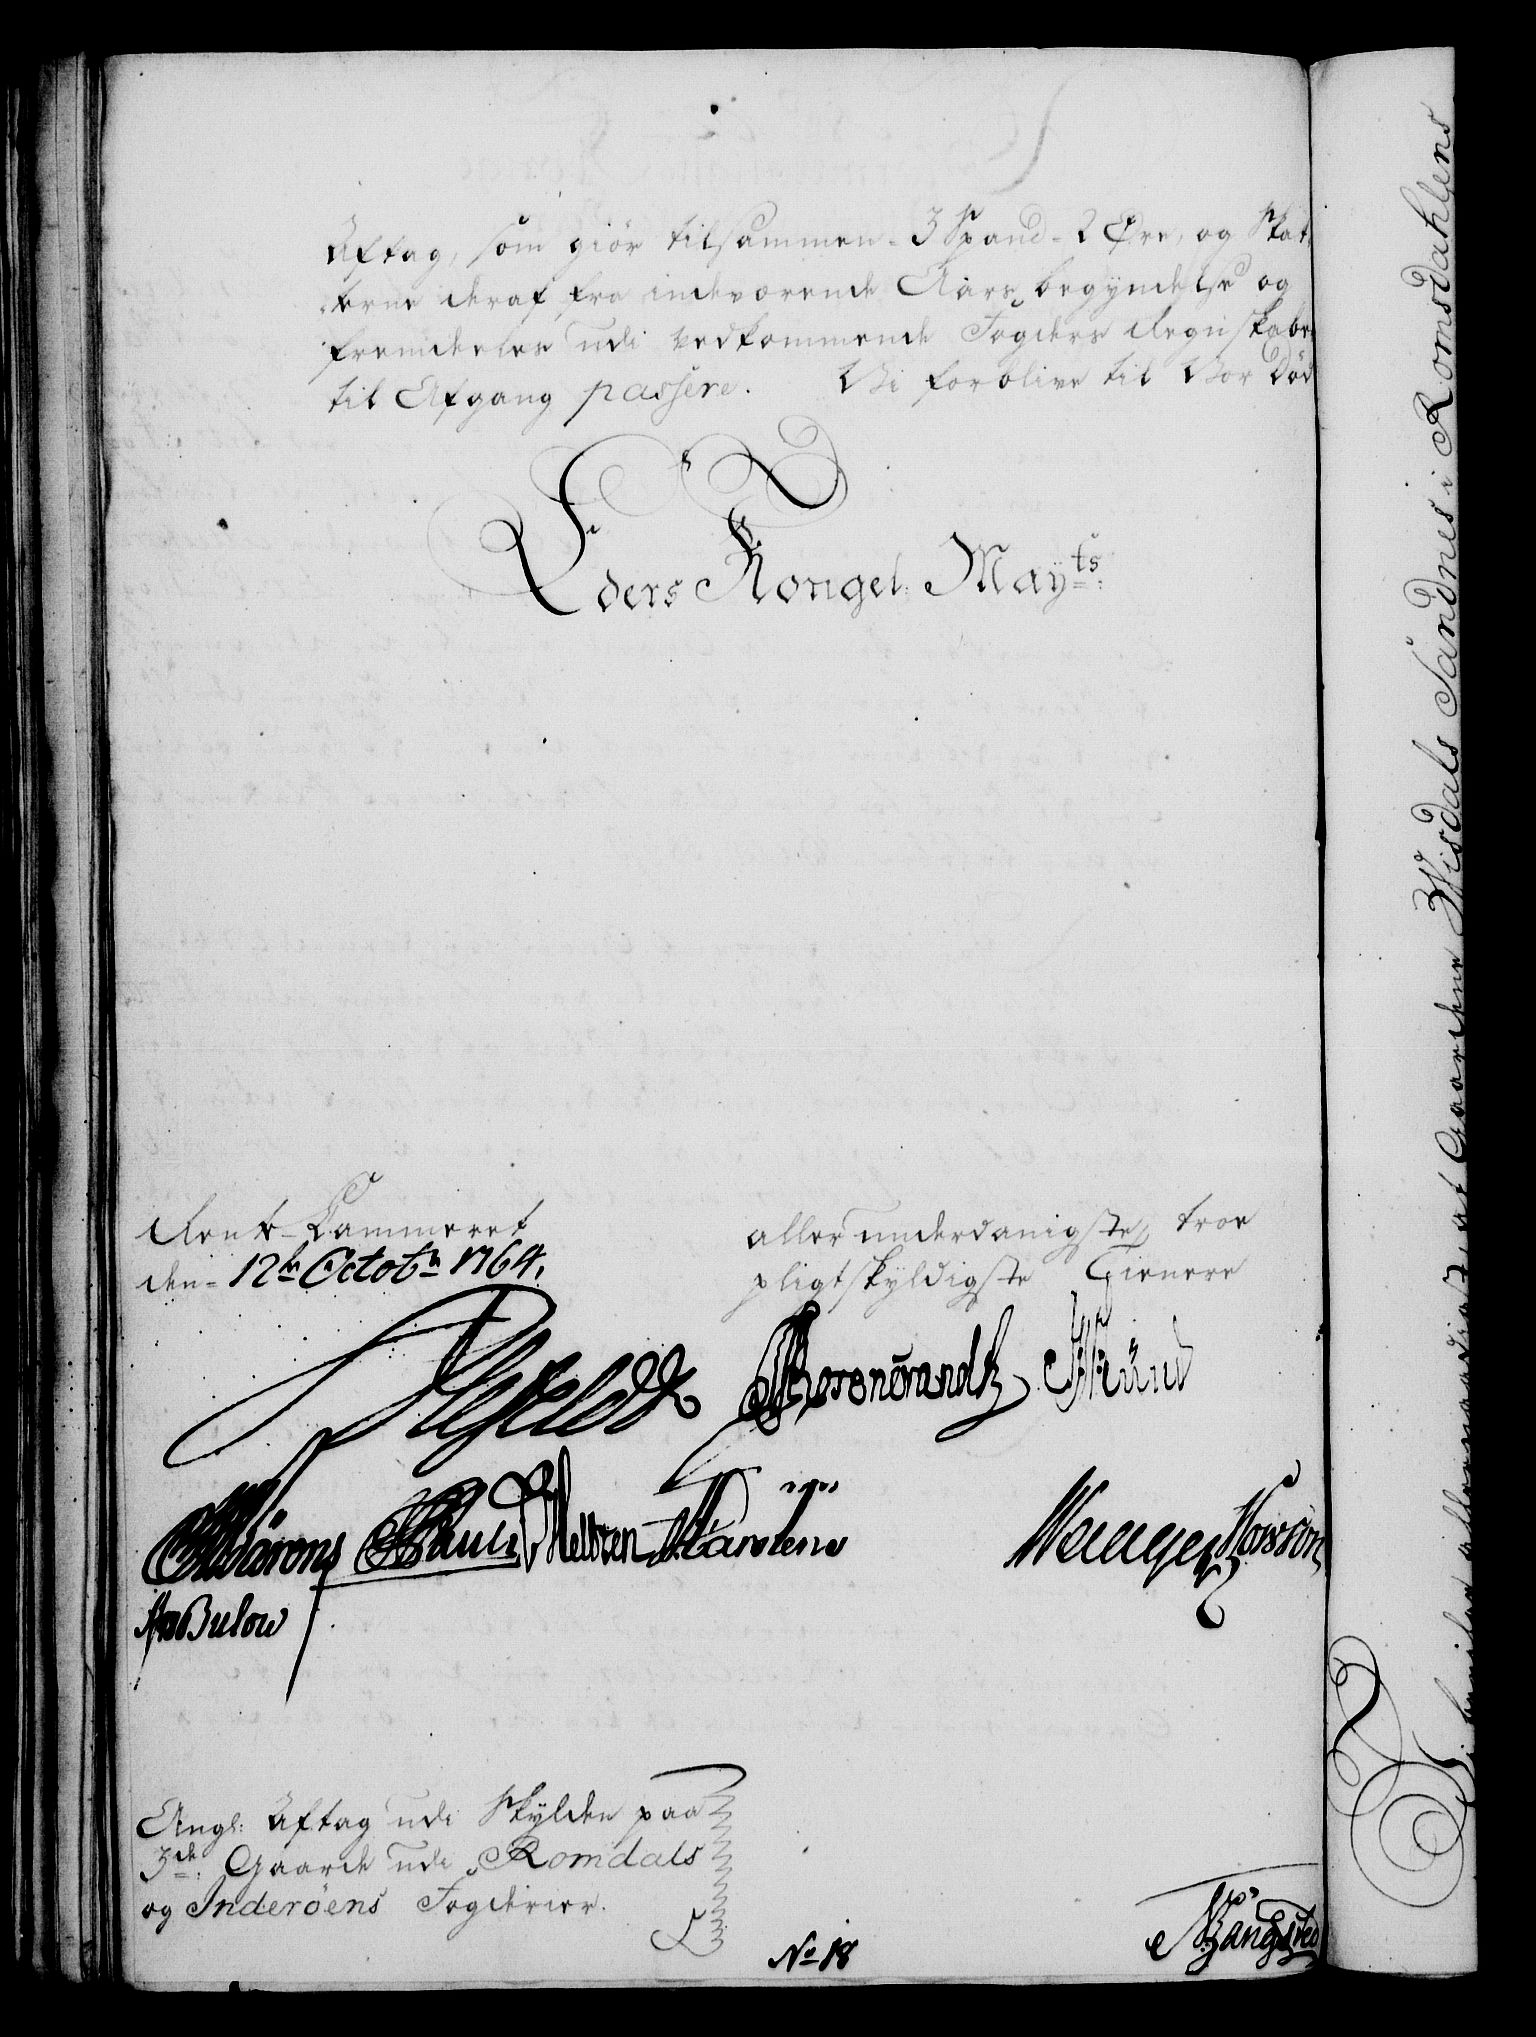 Aftag, som giør tilsammen - 3 Spand - 2 Øre, og Skat¬
terne deraf fra indeværende Aars begyndelse og
fremdeeles udi vedkommende Fogders Regnskaber
til Afgang passere. Vi forblive til Vor Død
Eders Kongel: Mayts:
Rente-Cammeret
den - 12te Octobr 1764.
allerunderdanigste, troe
pligtskyldigste Tienere
Ahlefeldt
Rosencrandtz
Möron
Pauli
Meltzen
Marstens
v. Bulow
Angl: Aftag udi Skylden paa
3de: Gaarde udi Romdals
og Inderöens Fogderier.
No 18
Bangsted
af Gaardene Wisdals Sandnes i Romsdahlens